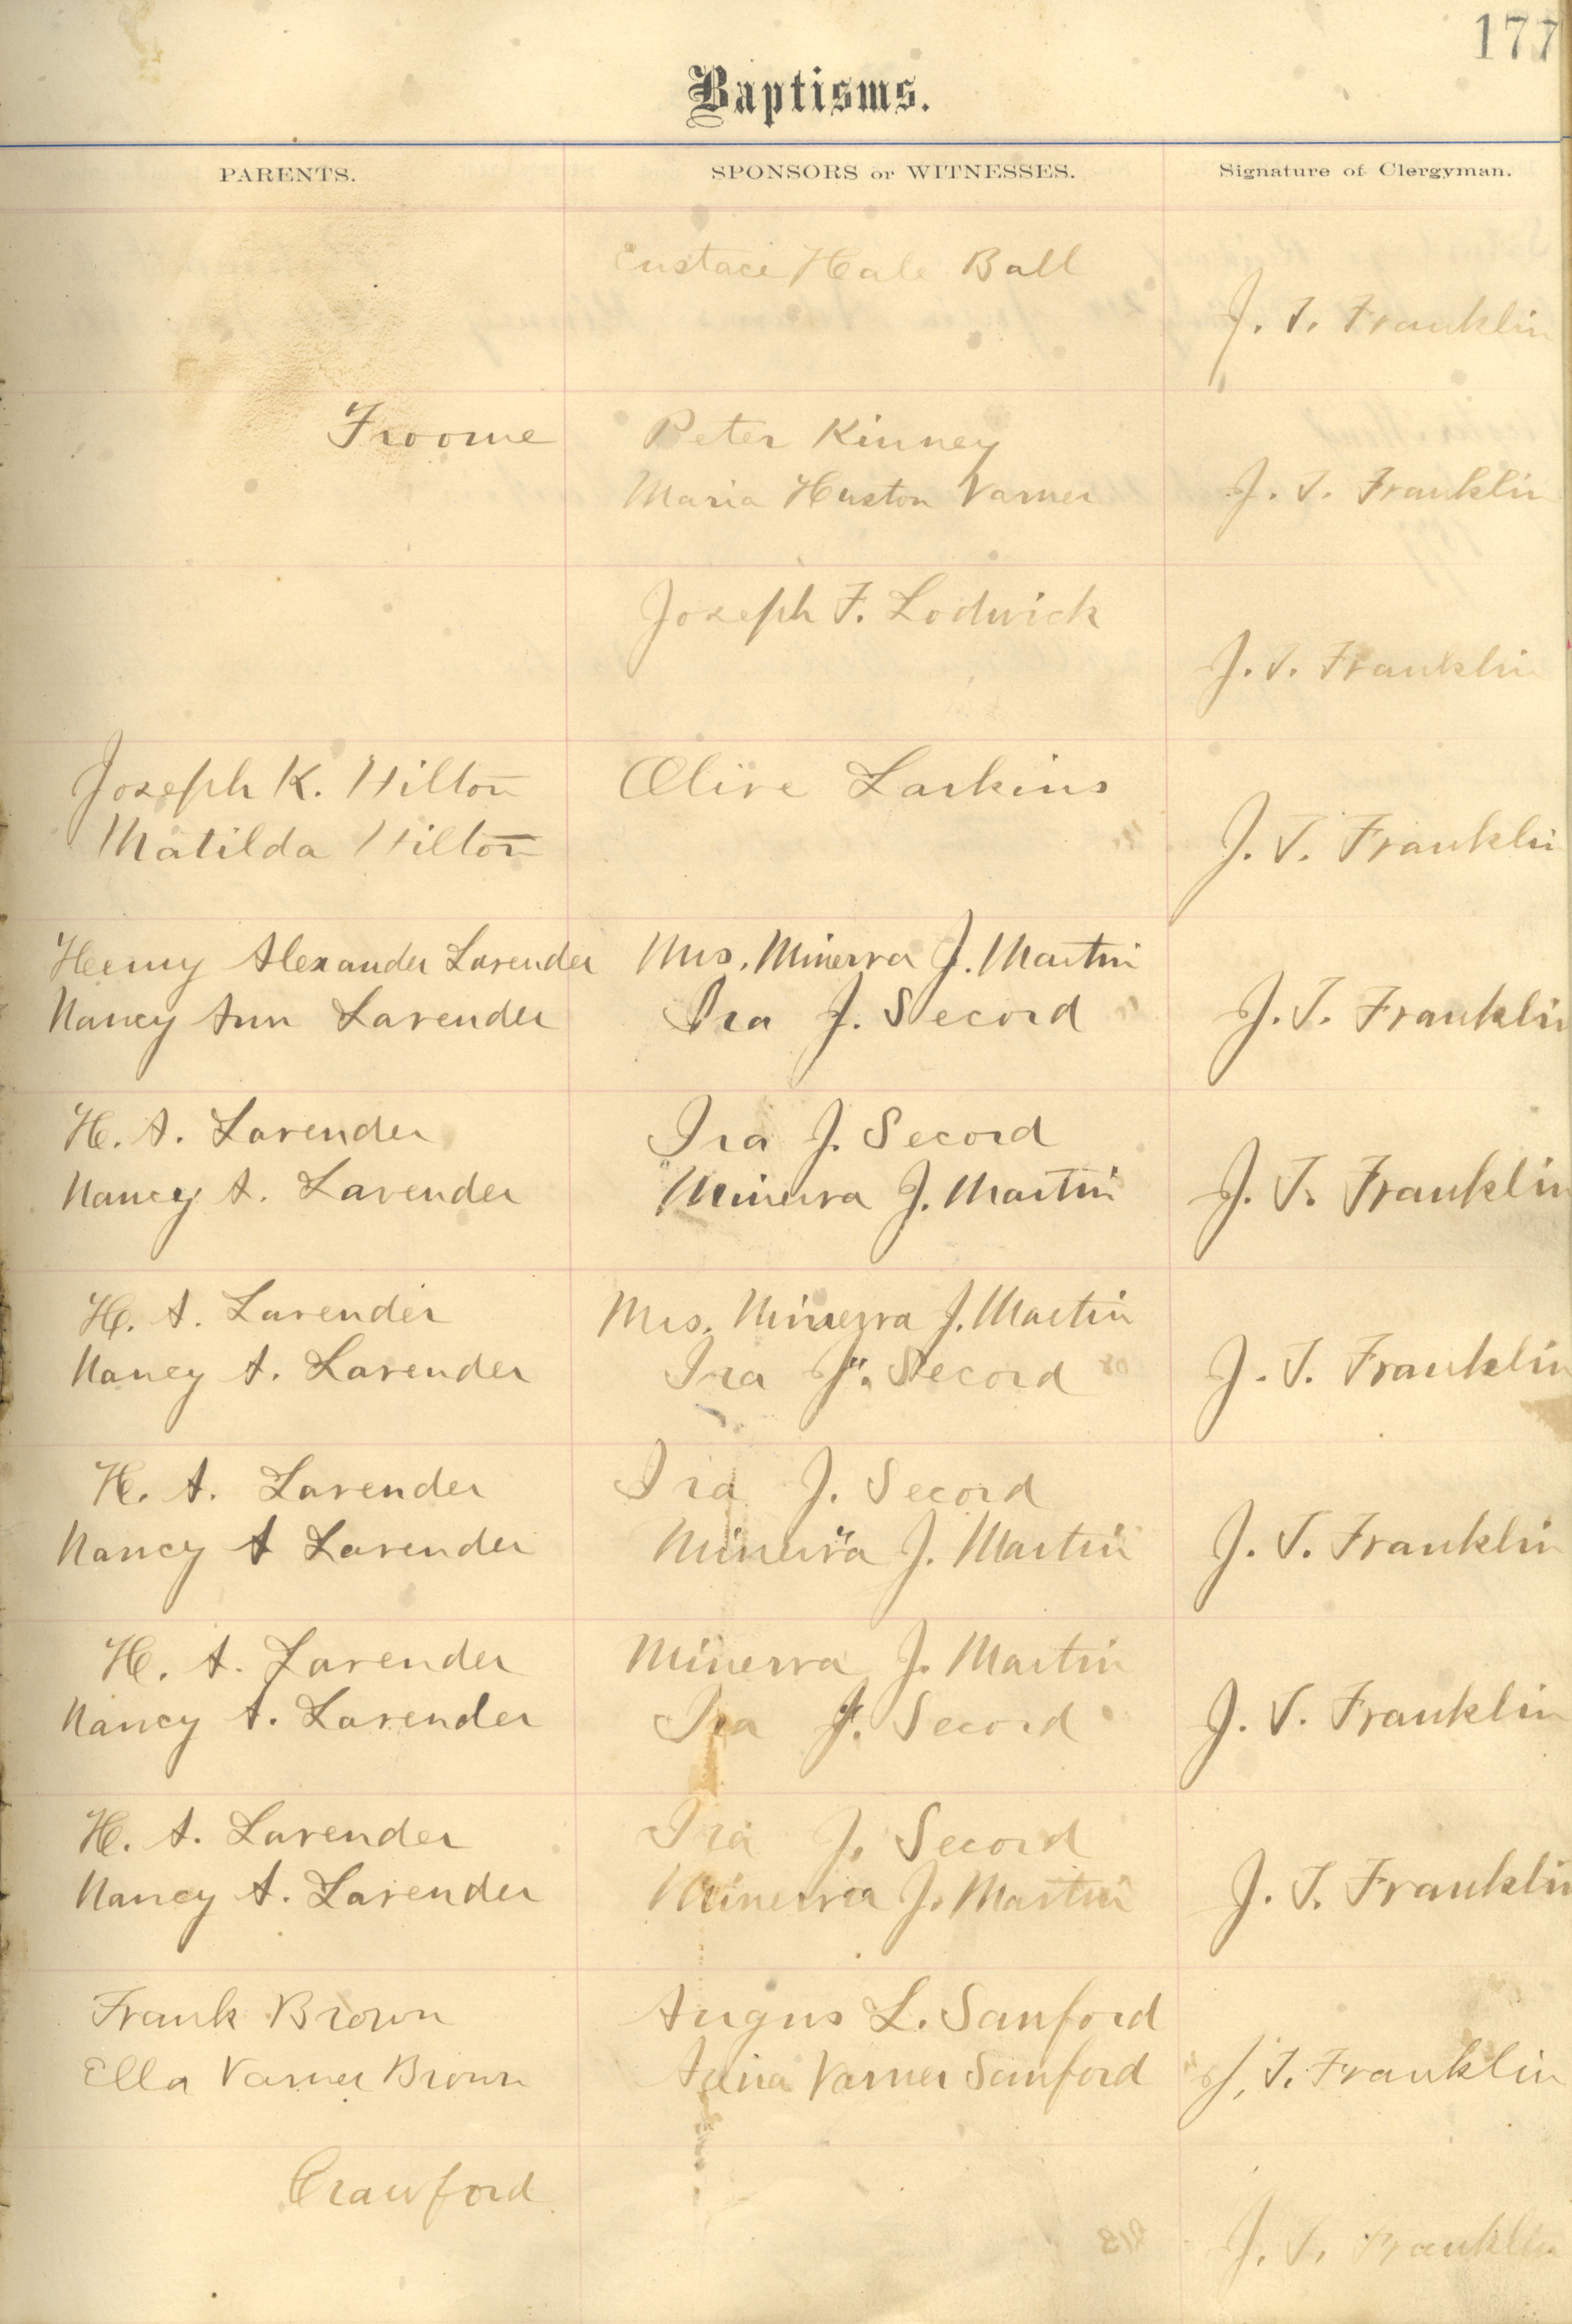 177
Baptisms.
PARENTS. SPONSORS or WITNESSES. Signature of Clergyman.
Eustace Hale Ball
J. T. Franklin
Froome Peter Kinney
Maria Huston Varner J. T. Franklin
Joseph F. Lodwick
J. T. Franklin
Joseph K. Hilton Olive Larkins
Matilda Hilton J. T. Franklin
Henry Alexander Lavender Mrs. Minerva J. Martin
Nancy Ann Lavender Ira J. Secord J. T. Franklin
H. A. Lavender Ira J. Secord
Nancy A. Lavender Minerva J. Martin J. T. Franklin
H. A. Lavender Mrs. Minerva J. Martin
Nancy A. Lavender Ira J. Secord J. T. Franklin
H. A. Lavender Ira J. Secord
Nancy A Lavender Minerva J. Martin J. T. Franklin
H. A. Lavender Minerva J. Martin
Nancy A. Lavender Ira J. Secord J. T. Franklin
H. A. Lavender Ira J. Secord
Nancy A. Lavender Minerva J. Martin J. T. Franklin
Frank Brown Angus L. Sanford
Ella Varner Brown Varner Sanford J. T. Franklin
Crawford
J. T. Franklin